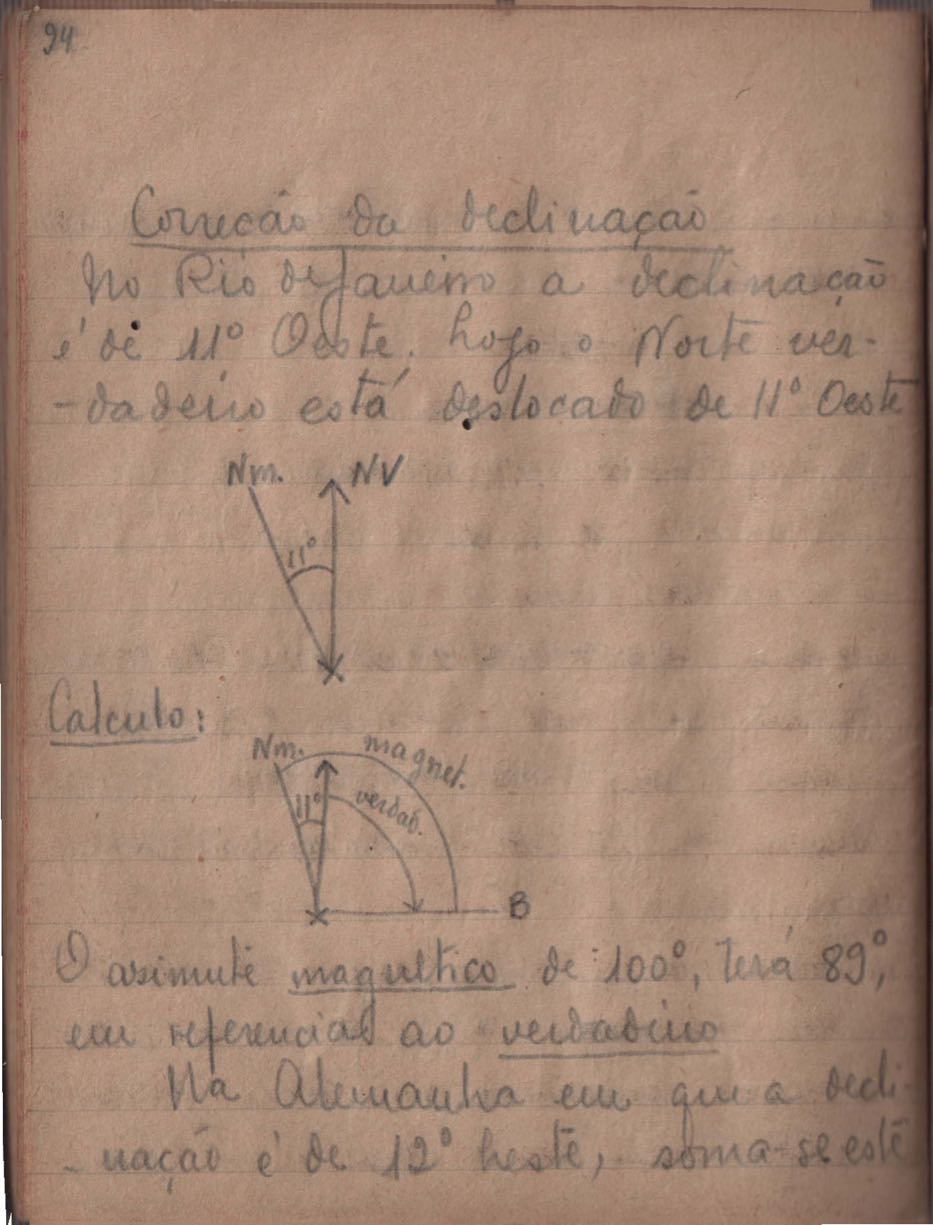 94
Correcão da declinação
No Rio de Janeiro a declinação
é de 11° Oeste. Logo o Norte ver-
-dadeiro está deslocado de 11° Oeste
Nm. NV
11°
Calculo:
Nm. magnet.
11° verdad.
B
O asimute magnetico de 100°, terá 89°,
em referencias ao verdadeiro
Na Alemanha em que a decli-
-nação é de 12° Leste, soma-se este